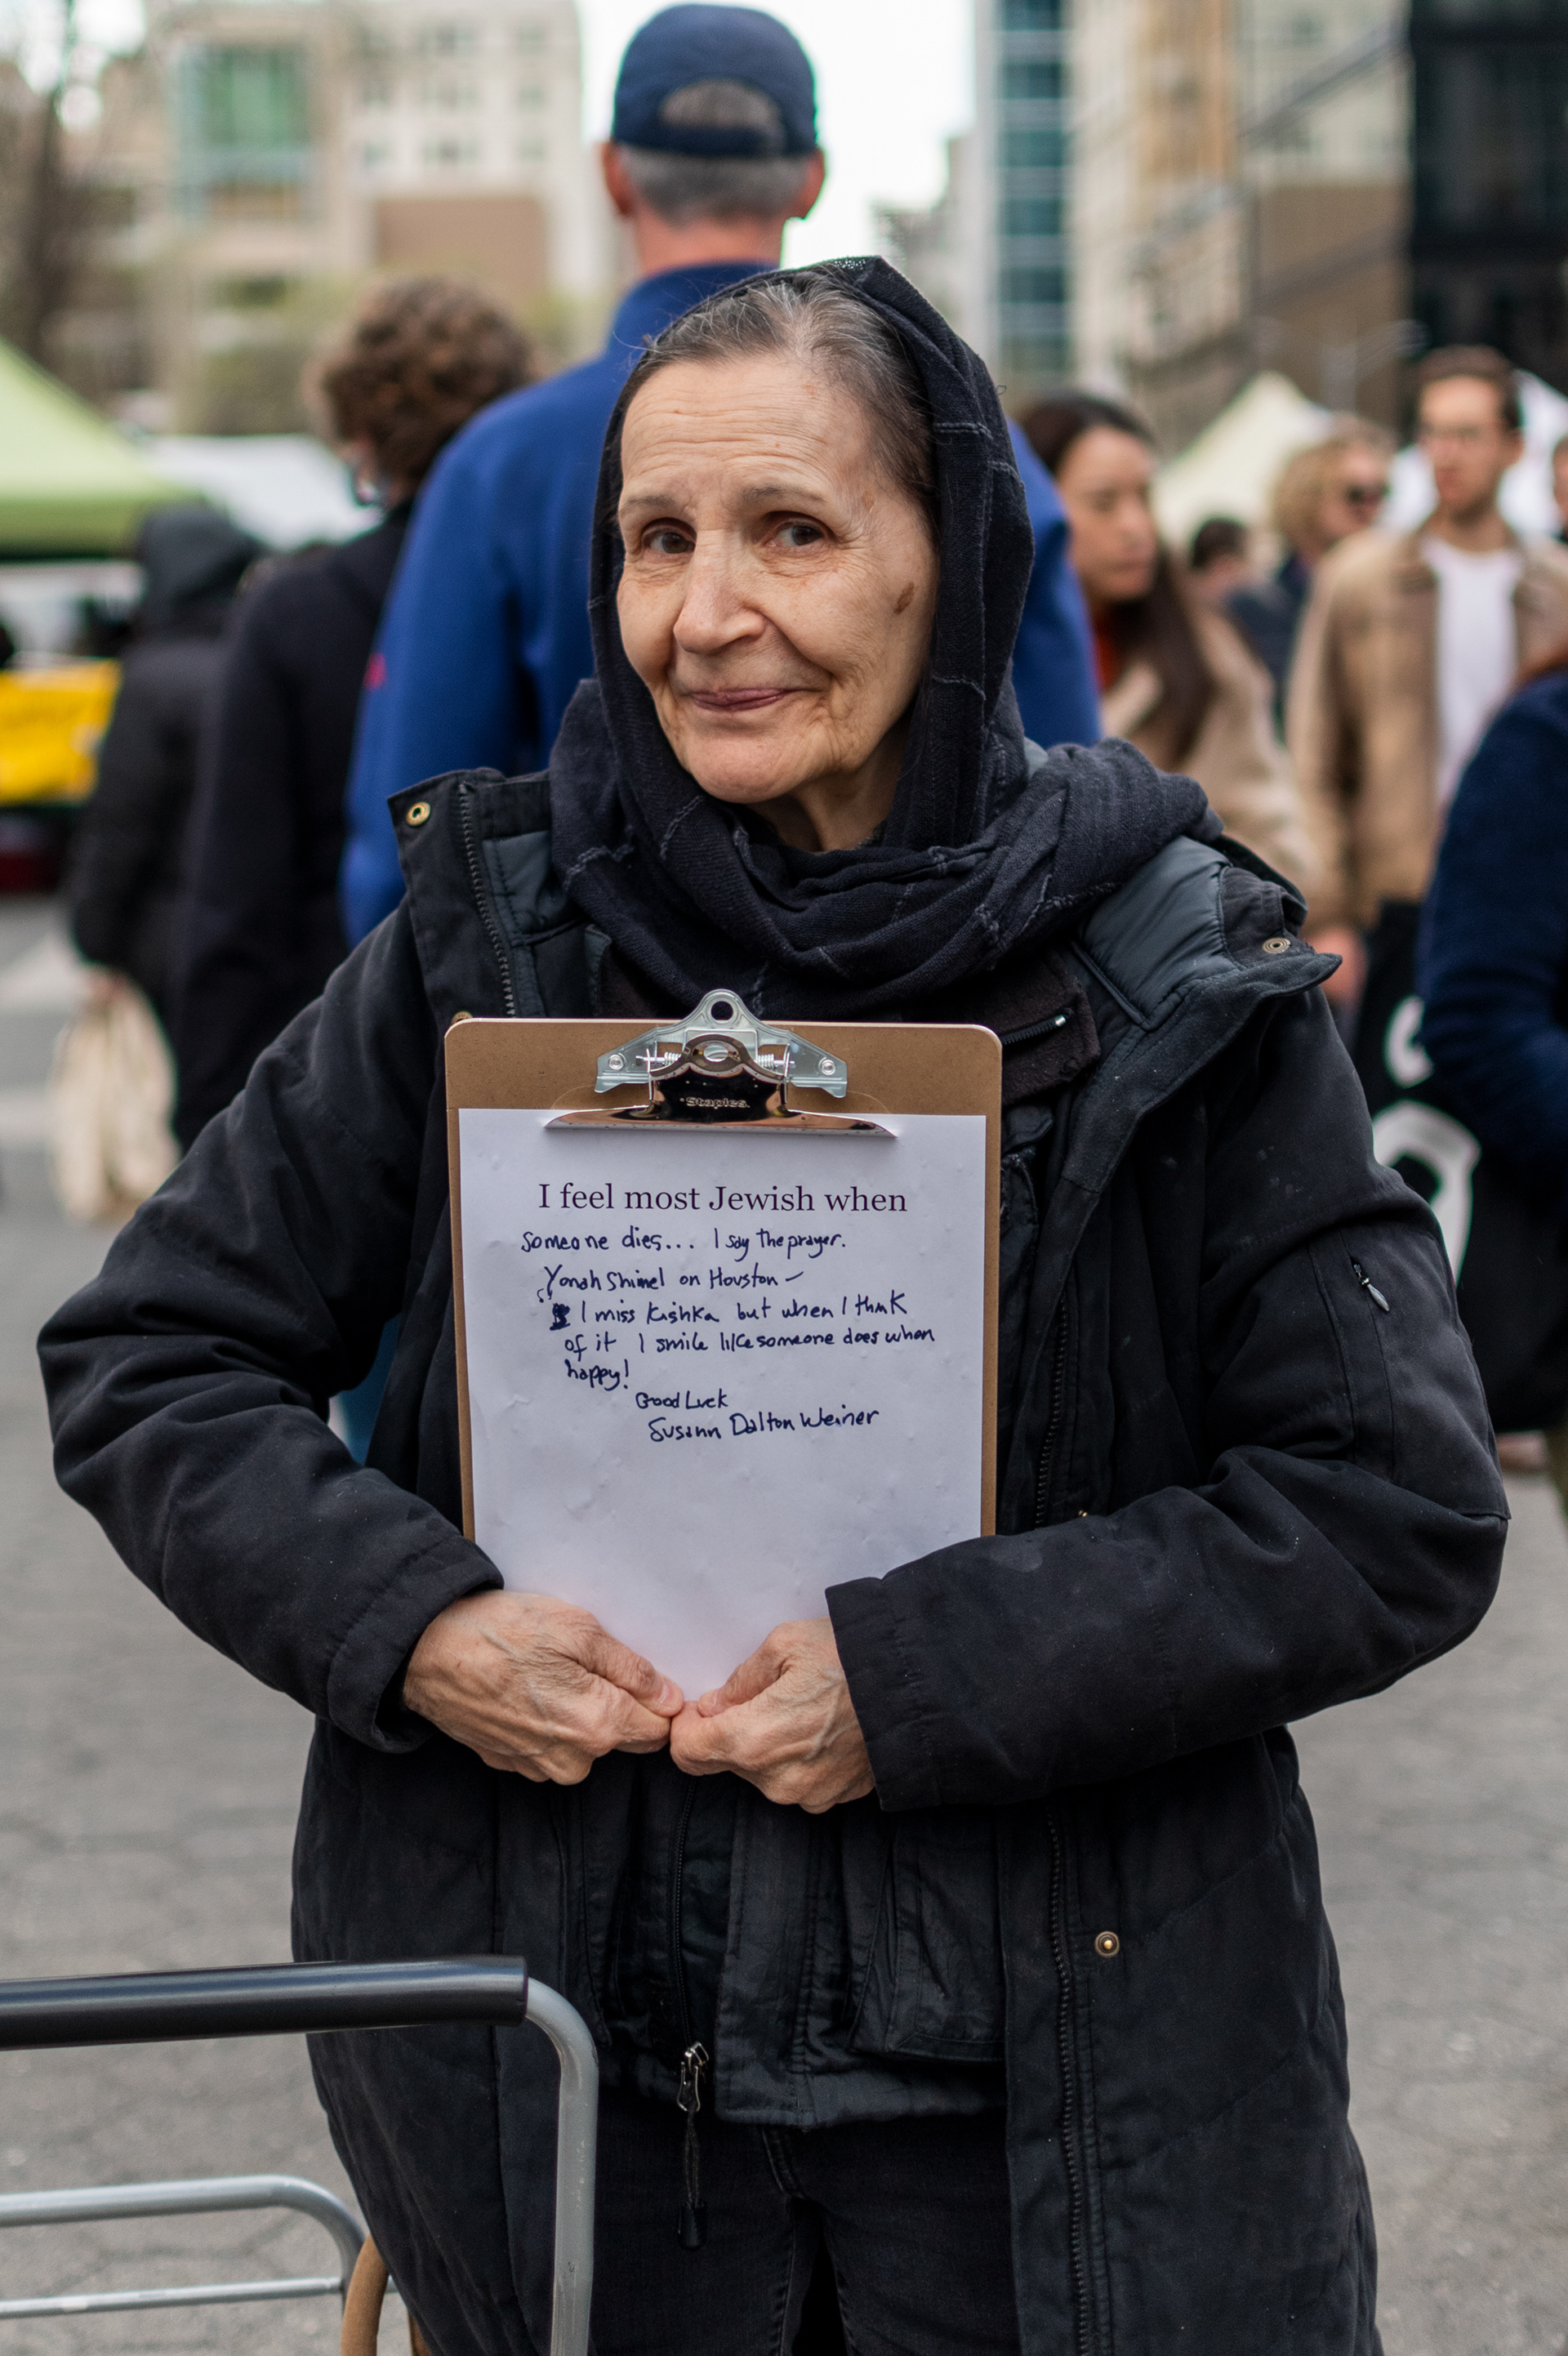 Staples
I feel most Jewish when
Someone dies... I say the prayer.
Yonah Shimel on Houston –
I miss Kishka but when I think
of it I smile like someone does when
happy!
Good Luck
Susann Dalton Weiner